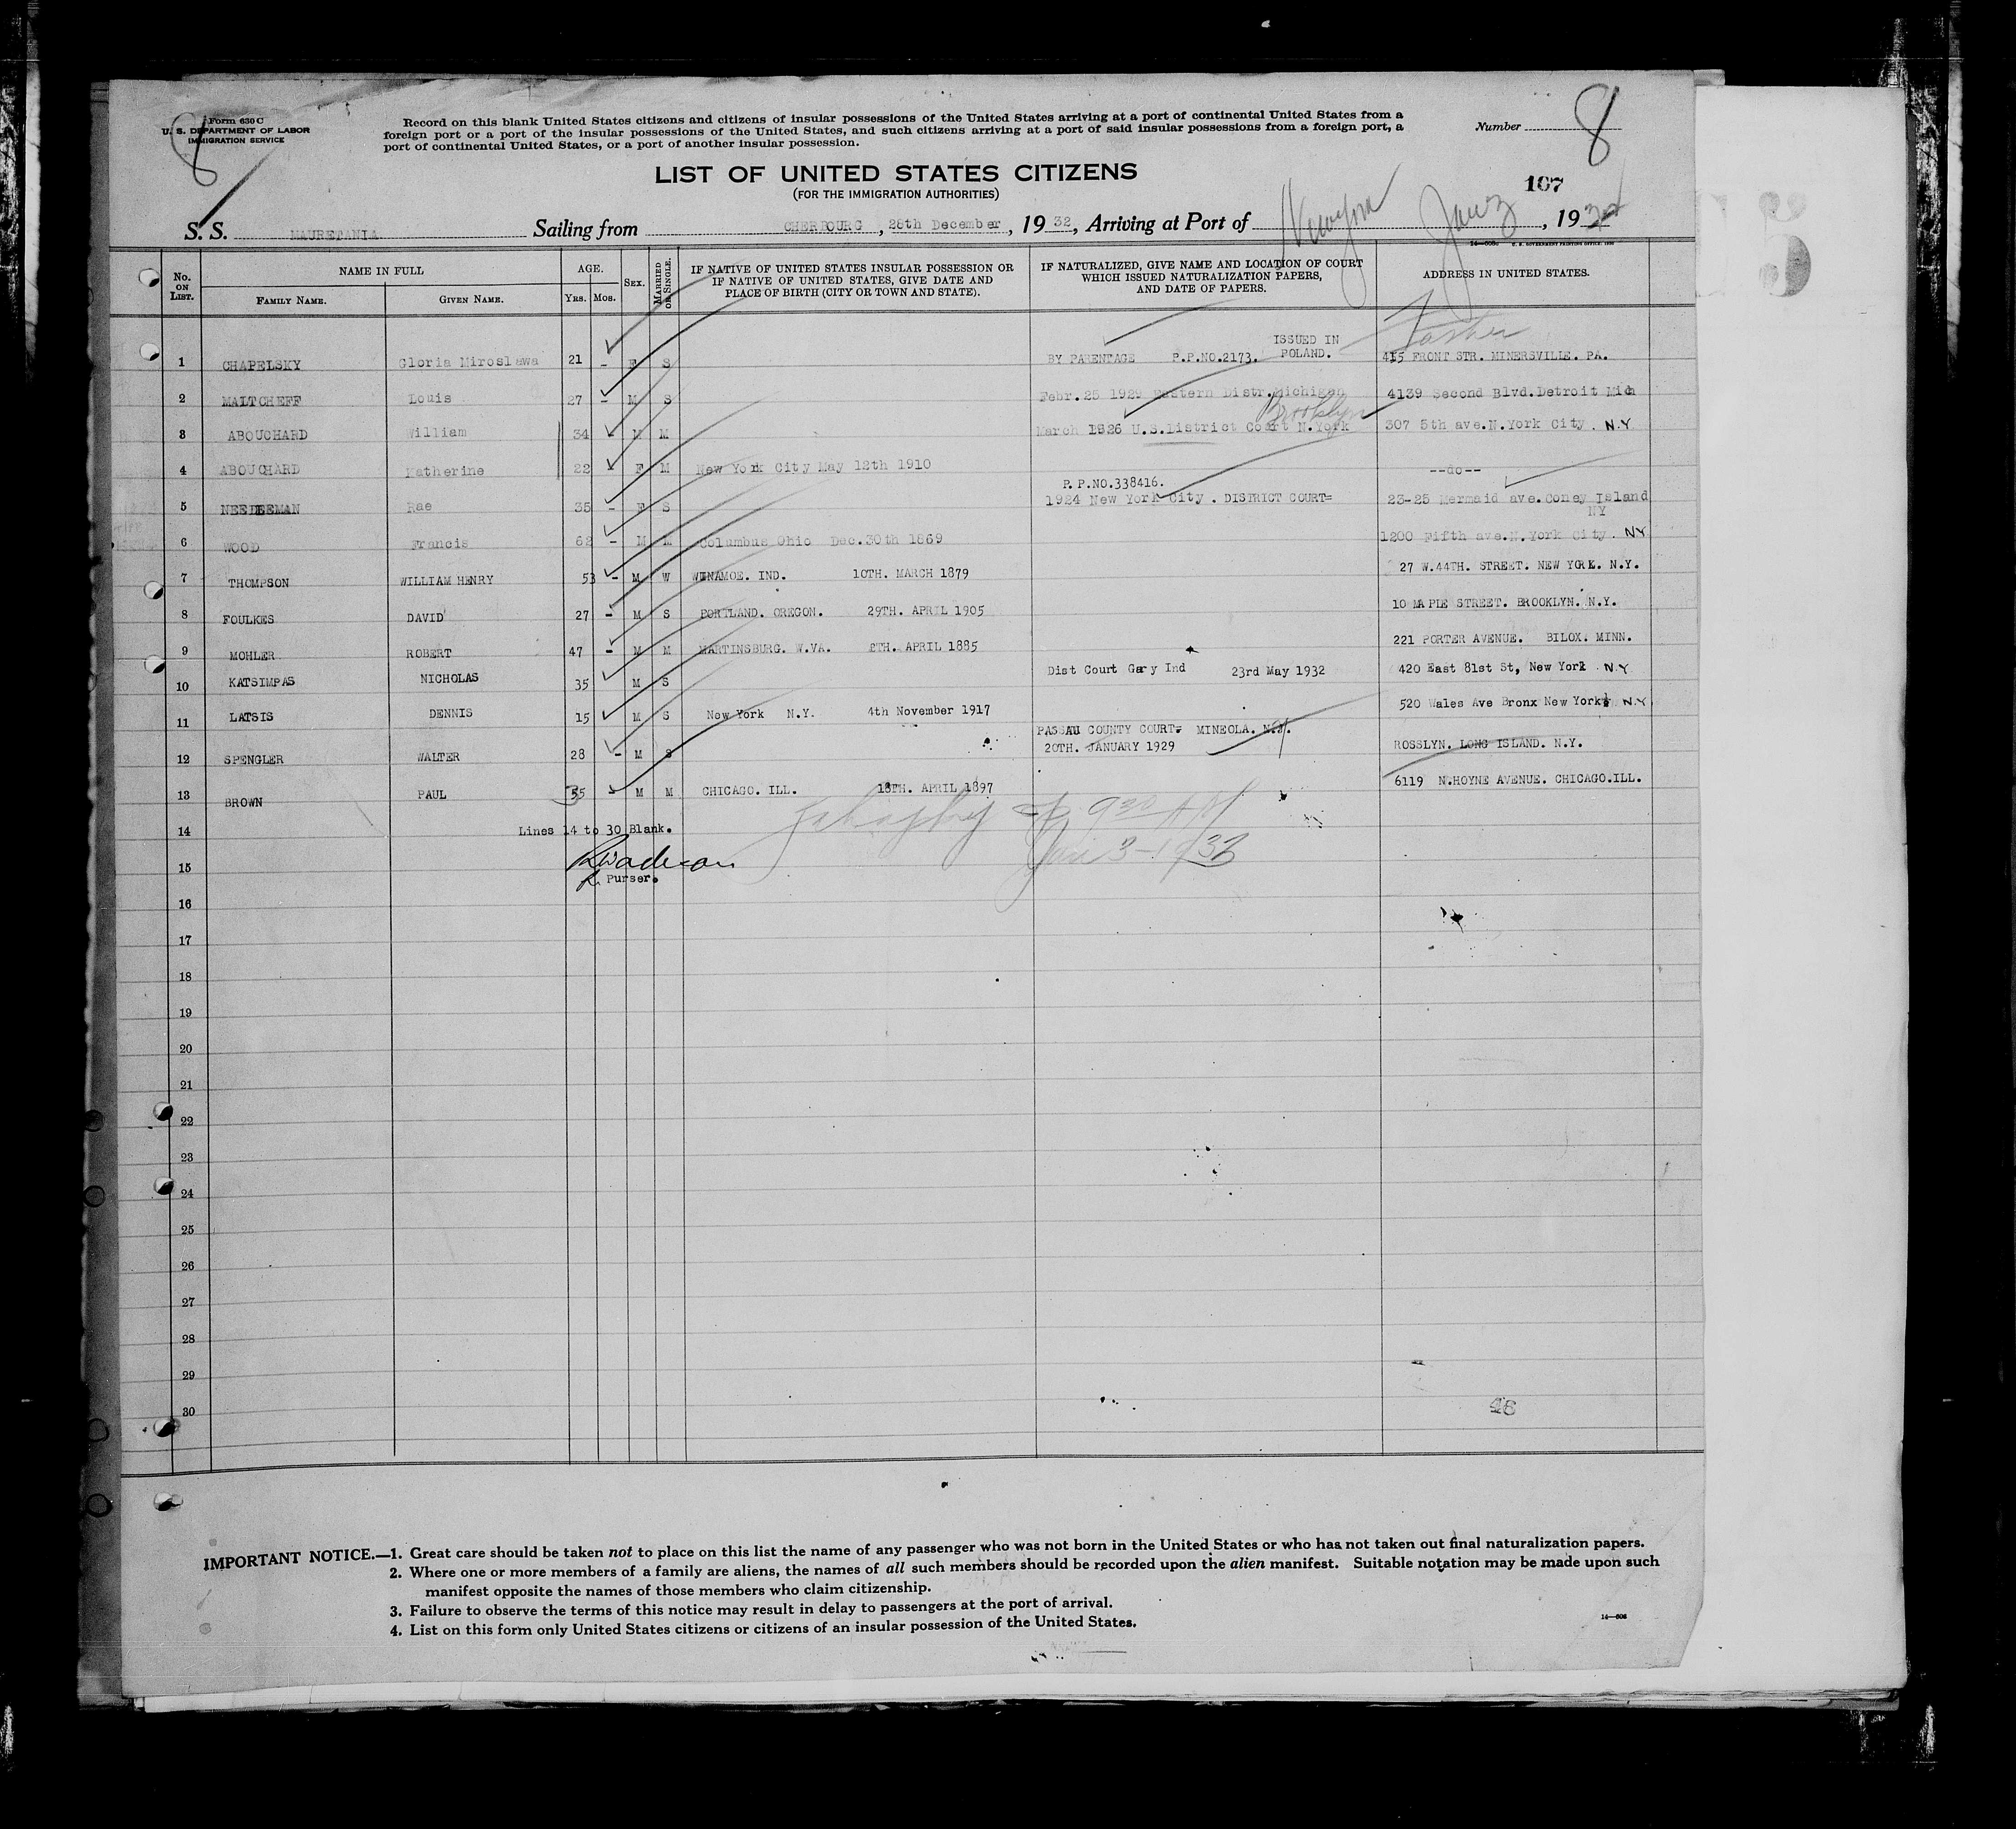 Form 630 C
U. S. DEPARTMENT OF LABOR
IMMIGRATION SERVICE
Record on this blank United States citizens and citizens of insular possessions of the United States arriving at a port of continental United States from a
foreign port or a port of the insular possessions of the United States, and such citizens arriving at a port of said insular possessions from a foreign port, a
port of continental United States, or a port of another insular possession.
Number 8
8
LIST OF UNITED STATES CITIZENS
(FOR THE IMMIGRATION AUTHORITIES)
167
S. S. MAURETANIA Sailing from CHERBOURG, 28th December, 19 32, Arriving at Port of New York Jan 3, 19
No. ON LIST.
NAME IN FULL
FAMILY NAME. GIVEN NAME.
AGE.
YRS. MOS.
SEX.
MARRIED OR SINGLE.
IF NATIVE OF UNITED STATES INSULAR POSSESSION OR
IF NATIVE OF UNITED STATES, GIVE DATE AND
PLACE OF BIRTH (CITY OR TOWN AND STATE).
IF NATURALIZED, GIVE NAME AND LOCATION OF COURT
WHICH ISSUED NATURALIZATION PAPERS,
AND DATE OF PAPERS.
ADDRESS IN UNITED STATES.
1 CHAPELSKY Gloria Miroslawa 21 - F S BY PARENTAGE P.P.NO.2173. ISSUED IN POLAND. 415 FRONT STR. MINERSVILLE. PA.
2 MALTCHEFF Louis 27 - M S Febr.25 1929 Eastern Distr.Michigan 4139 Second Blvd.Detroit Mich
Brooklyn
3 ABOUCHARD William 34 - M M March 1926 U.S.District Court N.York 307 5th ave.N.York City. N.Y
4 ABOUCHARD Katherine 22 - F M New York City May 12th 1910 --do--
P.P.NO.338416.
5 NEEDLEMAN Rae 35 - F S 1924 New York City. DISTRICT COURT= 23-25 Mermaid ave.Coney Island
NY
6 WOOD Francis 62 - M M Columbus Ohio Dec.30th 1869 1200 Fifth ave.N.York City. NY
7 THOMPSON WILLIAM HENRY 53 - M W WINAMOE. IND. 10TH. MARCH 1879 27 W.44TH. STREET. NEW YORK. N.Y.
8 FOULKES DAVID 27 - M S PORTLAND. OREGON. 29TH. APRIL 1905 10 MAPLE STREET. BROOKLYN. N.Y.
9 MOHLER ROBERT 47 - M M MARTINSBURG. W.VA. 8TH. APRIL 1885 221 PORTER AVENUE. BILOX. MINN.
10 KATSIMPAS NICHOLAS 35 M S Dist Court Gary Ind 23rd May 1932 420 East 81st St, New York N.Y
11 LATSIS DENNIS 15 M S New York N.Y. 4th November 1917 520 Wales Ave Bronx New York N.Y
PASSAU COUNTY COURT= MINEOLA. N.Y.
12 SPENGLER WALTER 28 - M S 20TH. JANUARY 1929 ROSSLYN. LONG ISLAND. N.Y.
13 BROWN PAUL 35 - M M CHICAGO. ILL. 18TH. APRIL 1897 6119 N.HOYNE AVENUE. CHICAGO.ILL.
14 Lines 14 to 30 Blank.
9 30 AM
Jan 3-1933
15
Purser.
16
17
18
19
20
21
22
23
24
25
26
27
28
29
30
46
IMPORTANT NOTICE.—1. Great care should be taken not to place on this list the name of any passenger who was not born in the United States or who has not taken out final naturalization papers.
2. Where one or more members of a family are aliens, the names of all such members should be recorded upon the alien manifest. Suitable notation may be made upon such
manifest opposite the names of those members who claim citizenship.
3. Failure to observe the terms of this notice may result in delay to passengers at the port of arrival.
4. List on this form only United States citizens or citizens of an insular possession of the United States.
14—606